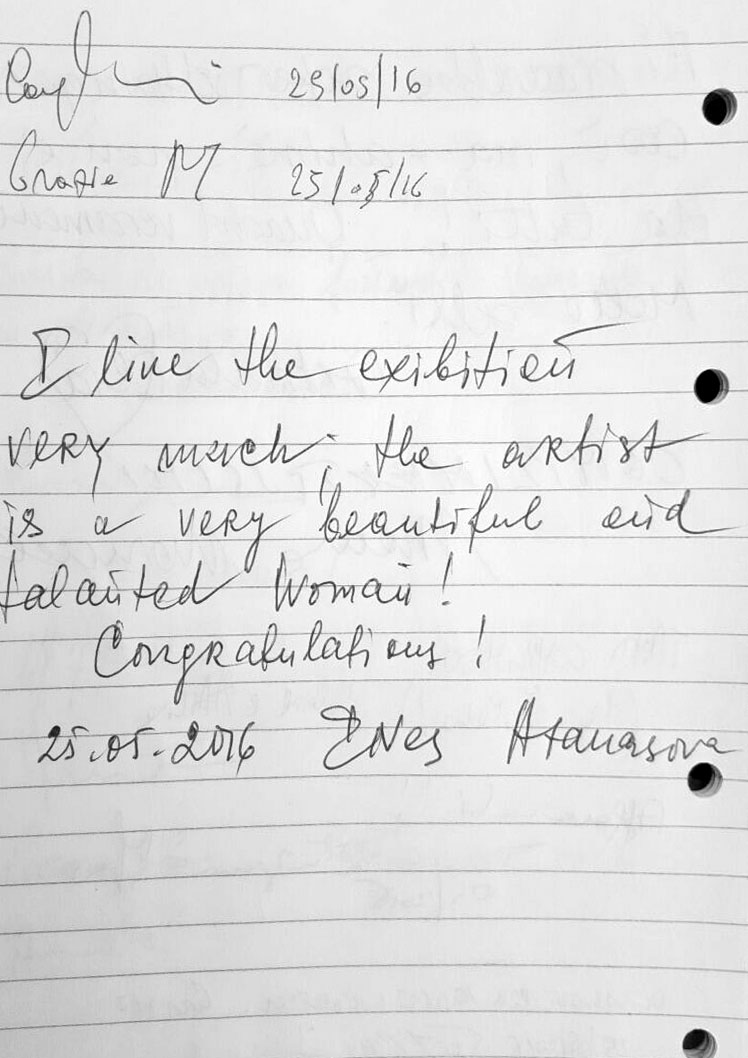 25/05/16
Grazie M 25/05/16
I like the exibition
very much; the artist
is a very beautiful and
talanted woman!
Congratulations!
25.05.2016 Ines Atanasova